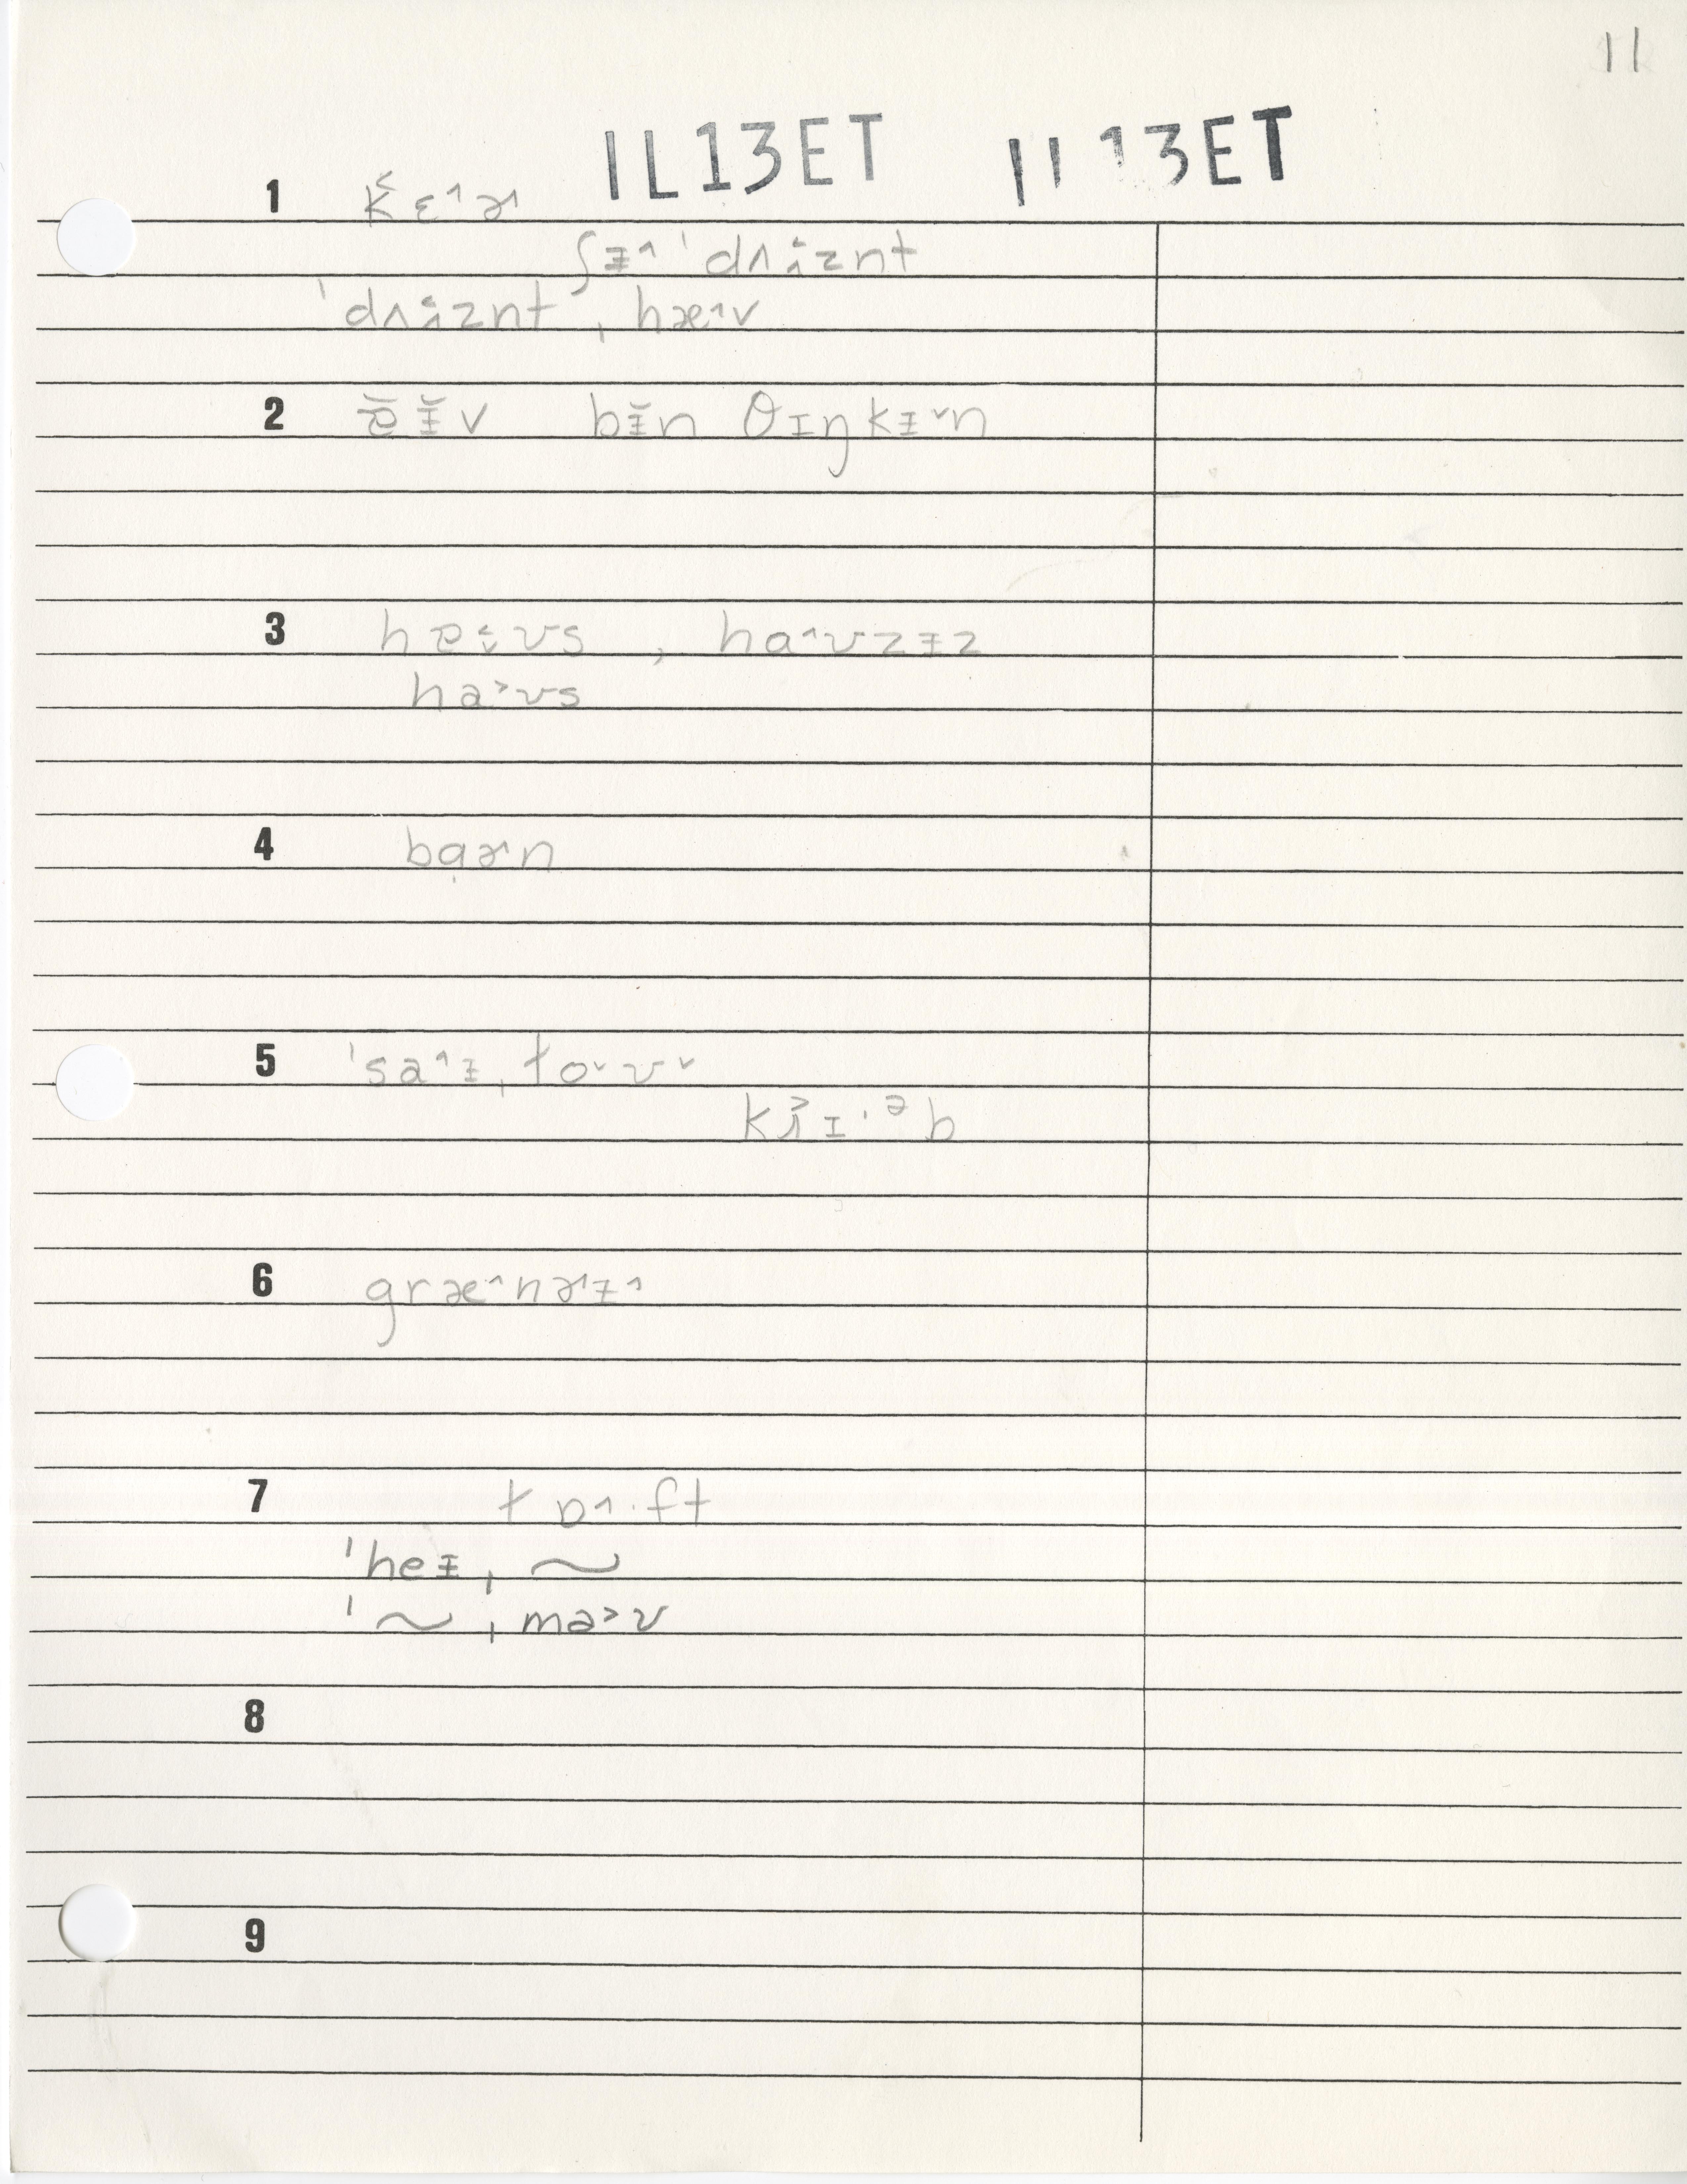 11
IL13ET IL13ET
1 k̬ɛ˄ɚ
ʃɨ˄ ˈdʌɨznt
ˈdʌɨznt ˌhæ˄v
2 ɐ̆ɨ̆v bɨ̆n θɪŋkɨ˅n
3 hɐʊs , ha˄ʊzɨz
ha˃ʊs
4 bɑ̣ɚn
5 ˈsa˄ɨˌlo˅ʊ˅
6 græ˄nɚɨ˄
7 lɒ˄·ft
ˈheɨˌ ~
ˈ ~ ˌma˃ʊ
8
9